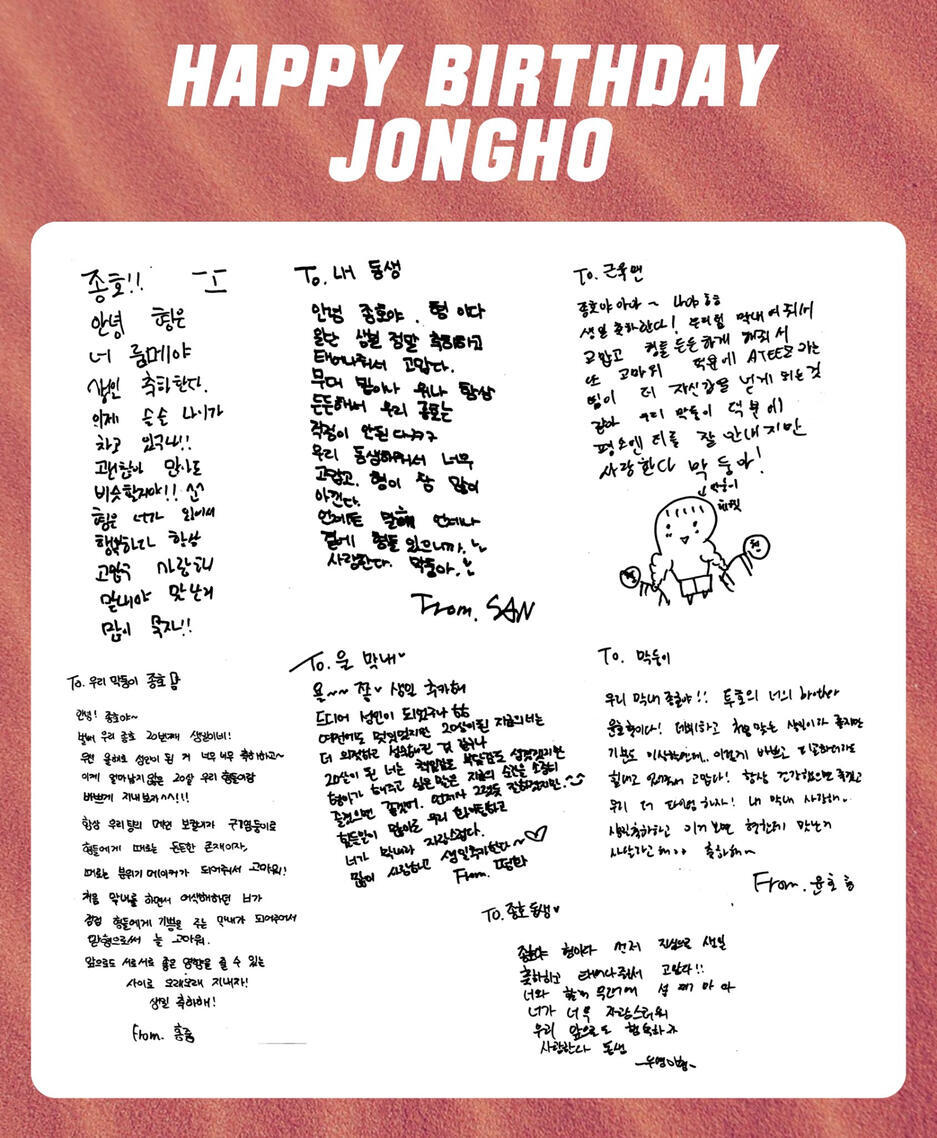 HAPPY BIRTHDAY
JONGHO
종호!!
안녕 형은
너 룸메야
생일 축하한다.
이제 슬슬 나이가
차고 있구나!!
괜찮아 만나도
비슷할거야!!
형은 너가 있어서
행복하다 항상
고맙구 사랑해
막내야 맛난거
많이 묵자!!
To. 내 동생
안녕 종호야. 형이다
일단 생일 정말 축하하고
태어나줘서 고맙다.
무대 뭐나 항상
든든해서 우리 종호는
걱정이 안된다ㅋㅋ
우리 동생해줘서 너무
고맙고, 형이 참 많이
아낀다.
언제든 말해 언제나
곁에 형들 있으니까.
사랑한다. 막둥아.
From. SAN
To. 근육맨
종호야 아 ~
생일 축하한다! 든든한 막내여 줘서
고맙고 형들 든든하게 해줘서
또 고마워 덕분에 ATEEZ 라는
팀이 더 자신감을 얻게 되는 것
같아 우리 막둥이 덕분에
평소엔 티를 잘 안내지만
사랑한다 막둥아!
막둥이
To. 우리 막둥이 종호
안녕! 종호야~
벌써 우리 종호 20번째 생일이네!
우선 올해로 성인이 된 거 너무너무 축하하고~
이제 얼마남지않은 20살 우리 형들이랑
바쁘게 지내보자^^!!!
항상 우리팀의 메인 보컬이자 근육둥이로
형들에게 때로는 든든한 존재이자,
때로는 분위기 메이커가 되어주서 고마워!
처음 막내를 하면서 어색해하던 너가
점점 형들에게 기쁨을 주는 막내가 되어주어서
맏형으로써 늘 고마워.
앞으로도 서로서로 좋은 영향을 줄 수 있는
사이로 오래오래 지내자!
생일 축하해!
From. 홍중
To. 울 막내♡
욘~~ 쫑♡ 생일 축하해
드디어 성인이 되었구나
여전히도 멋있었지만 20살이된 지금의 너는
더 의젓하고 성숙해진 것 같구나
20살이 된 너는 책임감도 부담감도 생겼겠지만
형아가 해주고 싶은 말은 지금의 순간을 소중히
즐겼으면 좋겠어. 언제나 그랬듯 잘하겠지만.
힘든일이 많아도 우리 화이팅하고
너가 막내라 자랑스럽다.
많이 사랑하고 생일축하한다~♡
From.
To. 막둥이
우리 막내 종호야!! 토종의 너의 brother
윤호형이다! 데뷔하고 처음 맞는 생일이라 좋지만
기분도 이상하겠네.. 이렇게 바쁘고 피곤하더라도
힘내고 있어줘서 고맙다! 항상 건강했으면 좋겠고
우리 더 파이팅 하자! 내 막내 사랑해.
생일축하하고 이거 보면 형한테 맛난거
사달라고해 축하해~
From. 윤호
To. 종호 동생♥
종호야 형이다 먼저 진심으로 생일
축하하고 태어나줘서 고맙다!!
너와 함께
너가 너무 자랑스러워
우리 앞으로도 함께하자
사랑한다 동생
-우영이형-